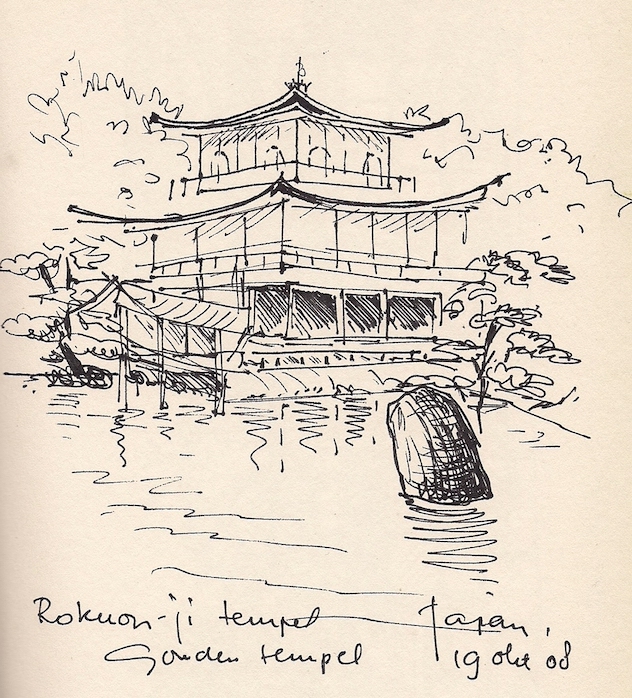 Rokuon-ji tempel Japan,
Gouden tempel 19 okt 08